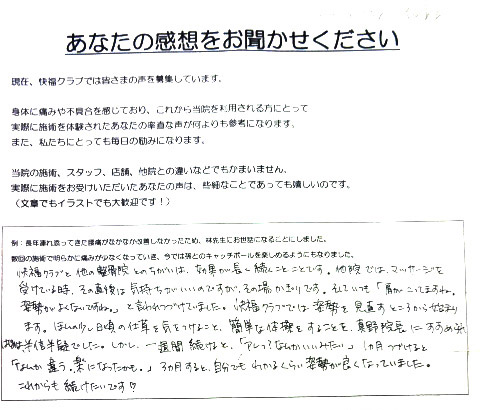 あなたの感想をお聞かせください
現在、快福クラブでは皆さまの声を募集しています。
身体に痛みや不具合を感じており、これから当院を利用される方にとって
実際に施術を体験されたあなたの率直な声が何よりも参考になります。
また、私たちにとっても毎日の励みになります。
当院の施術、スタッフ、店舗、他院との違いなどでもかまいません。
実際に施術をお受けいただいたあなたの声は、些細なことであっても嬉しいのです。
（文章でもイラストでも大歓迎です！）
例：長年連れ添ってきた腰痛がなかなか改善しなかったため、林先生にお世話になることにしました。
数回の施術で明らかに痛みが少なくなっていき、今では孫とのキャッチボールを楽しめるようにもなりました。
快福クラブと他の整骨院とのちがいは、効果が長く続くことです。他院では、マッサージを
受けている時、その直後は気持ちがいいのですが、その場かぎりです。そしていつも「肩がこってますね。
姿勢がよくないですね。」と言われつづけていました。快福クラブでは姿勢を見直すところから始まり
ます。ほんの少し日頃の仕草を気をつけること、簡単な体操をすることを、真野院長にすすめられ
半信半疑でした。しかし、一週間続けると、「アレっ？なんかいいみたい。」1ヵ月つづけると
「なんか違う。楽になったかも。」3ヵ月すると、自分でもわかるくらい姿勢が良くなっていました。
これからも続けたいです♡